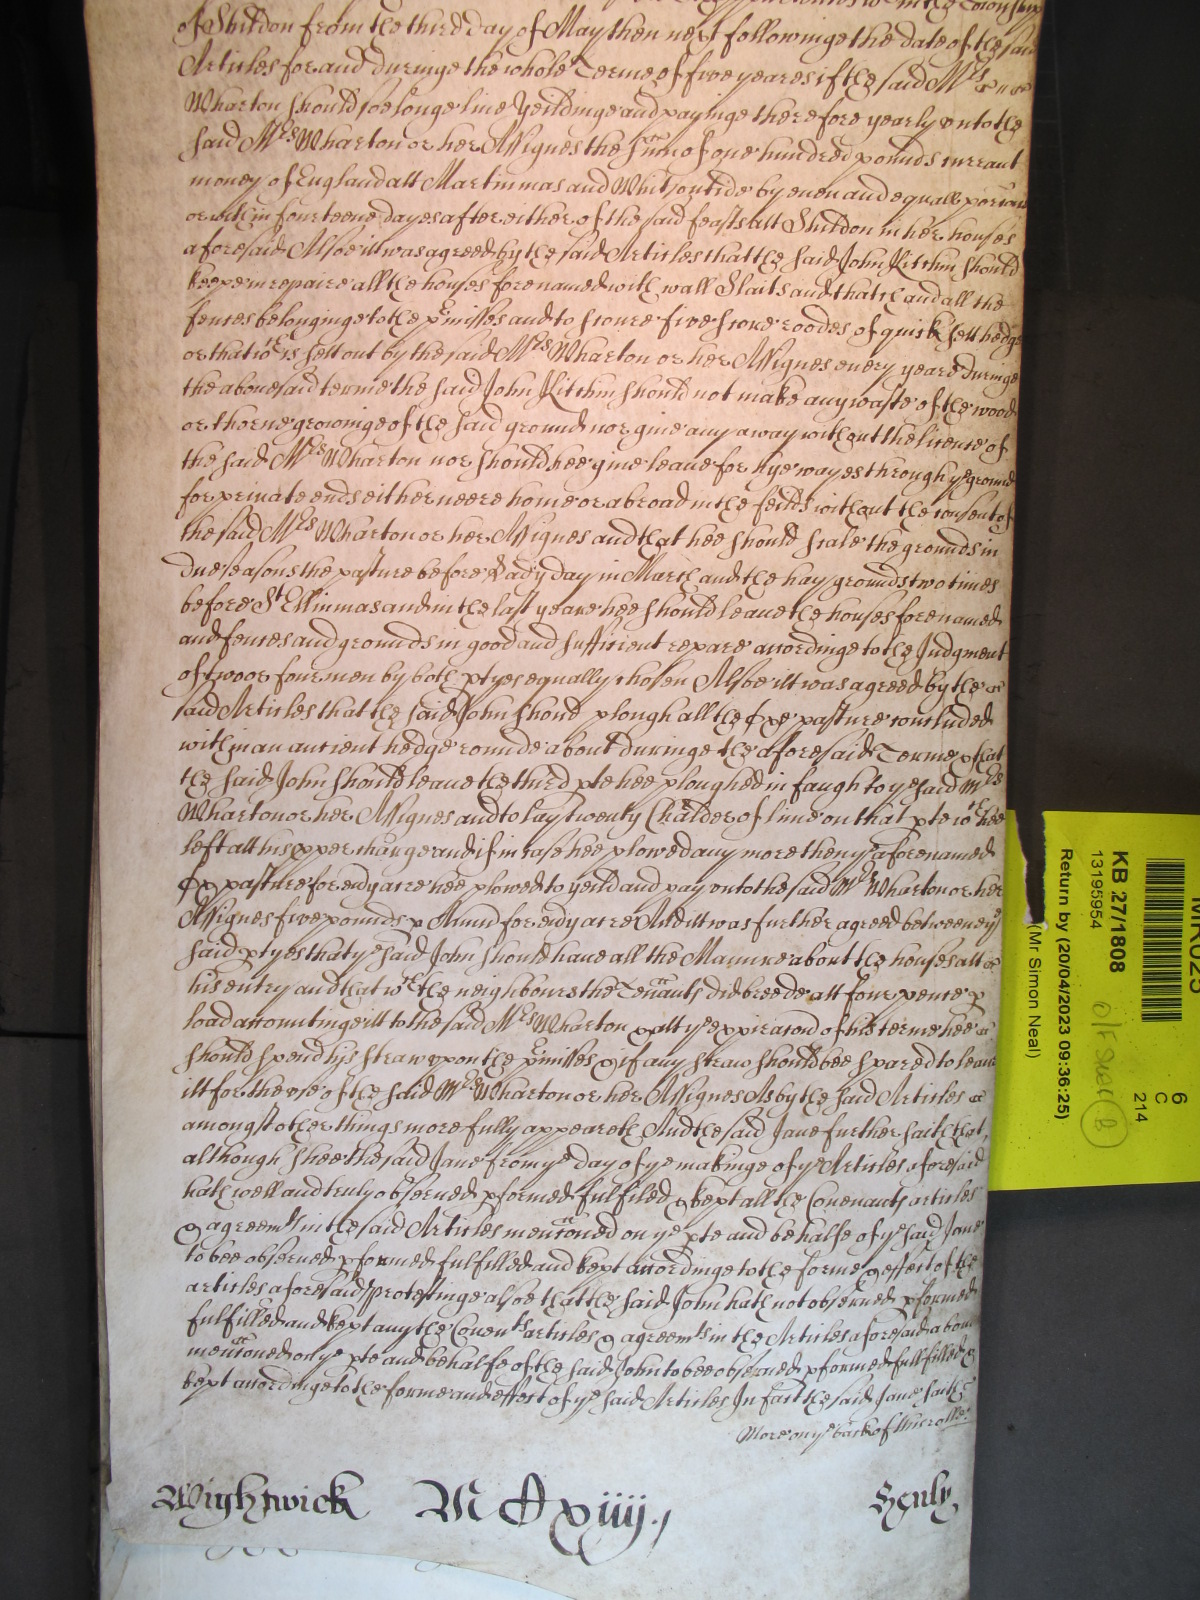 of Shildon from the third day of May then next followinge the date of the said
Articles for and duringe the whole Terme of five yeares if the said Mrs
Wharton should soe longe live Yeildinge and payinge therefore yearly unto the
said Mrs Wharton or her Assignes the sum̃ of one hundred pounds currant
money of England att Martinmas and Whitsontide by even and equall porc̃ons
or wthin fourteene dayes after either of the said feasts att Shildon in her houses
aforesaid Alsoe itt was agreed by the said Articles that the said John Kitchin should
keepe in repaire all the houses forenamed with wall Slaits and thatch and all the
fences belonginge to the p̃misses and to scoure five score roodes of quick sett hedge
or that wch is sett out by the said Mrs Wharton or her Assignes every yeare duringe
the abovesaid terme the said John Kitchin should not make any waste of the wood
or thorne growinge of the said ground nor give any away without the licence of
the said Mrs Wharton nor should hee give leave for hye wayes through ye ground
for private ends either neere home or abroad in the feilds without the consent of
the said Mrs Wharton or her Assignes and that hee should scale the grounds in
due seasons the pasture before Lady day in March and the hay grounds two times
before St Ellinmas and in the last yeare hee should leave the houses forenamed
and fences and grounds in good and sufficient repare accordinge to the Judgment
of two or foure men by both ptyes equally chosen Alsoe itt was agreed by the
said Articles that the said John should plough all the Oxe pasture concluded
within an ancient hedge rounde about duringe the aforesaid Terme & that
the said John should leave the third pte hee ploughed in faugh to ye said Mrs
Wharton or her Assignes and to lay twenty Chalder of lime on that pte wch hee
left att his p̱per charge and if in case hee plowed any more then ye aforenamed
Ox pasture for ev̱y acre hee plowed to yeild and pay unto the said Mrs Wharton or her
Assignes five pounds p Annu for ev̱y acre And itt was further agreed betweene ye
said ptyes that ye said John should have all the Manure about the houses att
his entry and that wch the neighbours the Tenants did breede att foure pence p
load accountinge itt to the said Mrs Wharton & att ye expiracon̄ of his terme hee
should spend his straw upon the p̃misses & if any straw should bee spared to leave
itt for the use of the said Mrs Wharton or her Assignes As by the said Articles
amongst other things more fully appeareth And the said Jane further saith that
although shee the said Jane from ye day of ye makinge of ye Articles aforesaid
hath well and truly observed pformed fulfiled & kept all the Covenants articles
& agreemts in the said Articles menc̃oned on ye pte and behalfe of ye said Jane
to bee observed pformed fulfilled and kept accordinge to the forme & effect of the
articles aforesaid protestinge alsoe that the said John hath not observed pformed
fulfilled and kept any the Coventts articles & agreemts in the Articles aforesaid above
menc̃oned on ye pte and behalfe of the said John to bee observed pformed fullfilled &
kept accordinge to the forme and effect of ye said Articles In fact the said Jane saith
More on ye back of
Wightwick
Henly
KB 27/1808
13195954
Return by (20/04/2023 09:36:25)
(Mr Simon Neal)
6
C
214
B